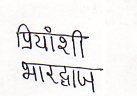 प्रियांशी
भारद्वाज